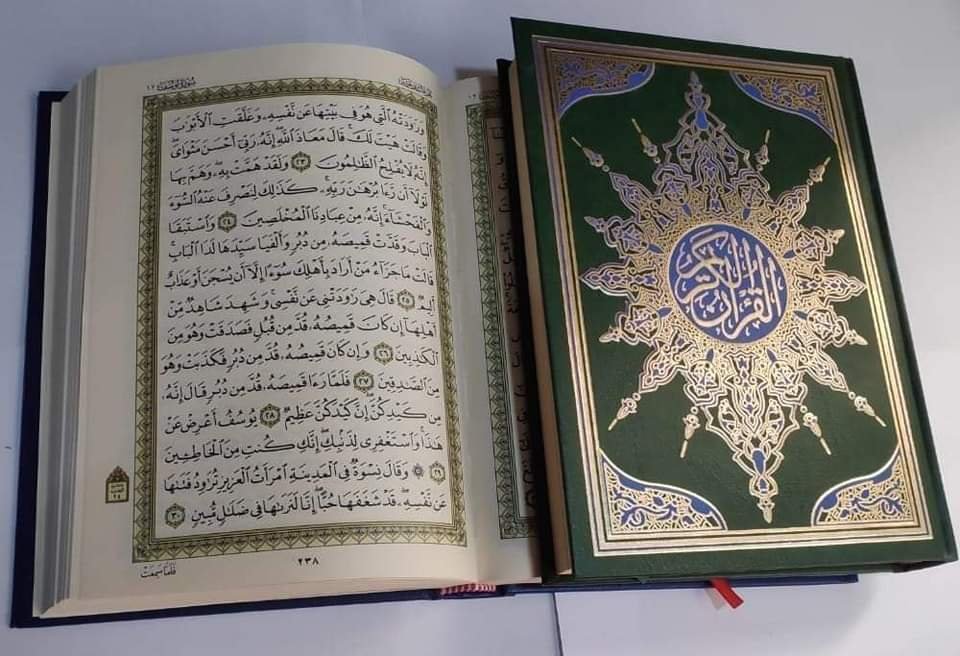 سورة يوسف ١٢
وَرَٰوَدَتْهُ ٱلَّتِى هُوَ فِى بَيْتِهَا عَن نَّفْسِهِۦ وَغَلَّقَتِ ٱلْأَبْوَٰبَ
وَقَالَتْ هَيْتَ لَكَ ۚ قَالَ مَعَاذَ ٱللَّهِ ۖ إِنَّهُۥ رَبِّىٓ أَحْسَنَ مَثْوَاىَ ۖ
إِنَّهُۥ لَا يُفْلِحُ ٱلظَّٰلِمُونَ ٢٣ وَلَقَدْ هَمَّتْ بِهِۦ ۖ وَهَمَّ بِهَا
لَوْلَآ أَن رَّءَا بُرْهَٰنَ رَبِّهِۦ ۚ كَذَٰلِكَ لِنَصْرِفَ عَنْهُ ٱلسُّوٓءَ
وَٱلْفَحْشَآءَ ۚ إِنَّهُۥ مِنْ عِبَادِنَا ٱلْمُخْلَصِينَ ٢٤ وَٱسْتَبَقَا
ٱلْبَابَ وَقَدَّتْ قَمِيصَهُۥ مِن دُبُرٍ وَأَلْفَيَا سَيِّدَهَا لَدَا ٱلْبَابِ ۚ
قَالَتْ مَا جَزَآءُ مَنْ أَرَادَ بِأَهْلِكَ سُوٓءًا إِلَّآ أَن يُسْجَنَ أَوْ عَذَابٌ
أَلِيمٌ ٢٥ قَالَ هِىَ رَٰوَدَتْنِى عَن نَّفْسِى ۚ وَشَهِدَ شَاهِدٌ مِّنْ
أَهْلِهَآ إِن كَانَ قَمِيصُهُۥ قُدَّ مِن قُبُلٍ فَصَدَقَتْ وَهُوَ مِنَ
ٱلْكَٰذِبِينَ ٢٦ وَإِن كَانَ قَمِيصُهُۥ قُدَّ مِن دُبُرٍ فَكَذَبَتْ وَهُوَ
مِنَ ٱلصَّٰدِقِينَ ٢٧ فَلَمَّا رَءَا قَمِيصَهُۥ قُدَّ مِن دُبُرٍ قَالَ إِنَّهُۥ
مِن كَيْدِكُنَّ ۖ إِنَّ كَيْدَكُنَّ عَظِيمٌ ٢٨ يُوسُفُ أَعْرِضْ عَنْ
هَٰذَا ۚ وَٱسْتَغْفِرِى لِذَنۢبِكِ ۖ إِنَّكِ كُنتِ مِنَ ٱلْخَاطِـِٔينَ
٢٩ ۞ وَقَالَ نِسْوَةٌ فِى ٱلْمَدِينَةِ ٱمْرَأَتُ ٱلْعَزِيزِ تُرَٰوِدُ فَتَىٰهَا
عَن نَّفْسِهِۦ ۖ قَدْ شَغَفَهَا حُبًّا ۖ إِنَّا لَنَرَىٰهَا فِى ضَلَٰلٍ مُّبِينٍ ٣٠
٢٣٨
فَلَمَّا سَمِعَتْ
القرآن الكريم